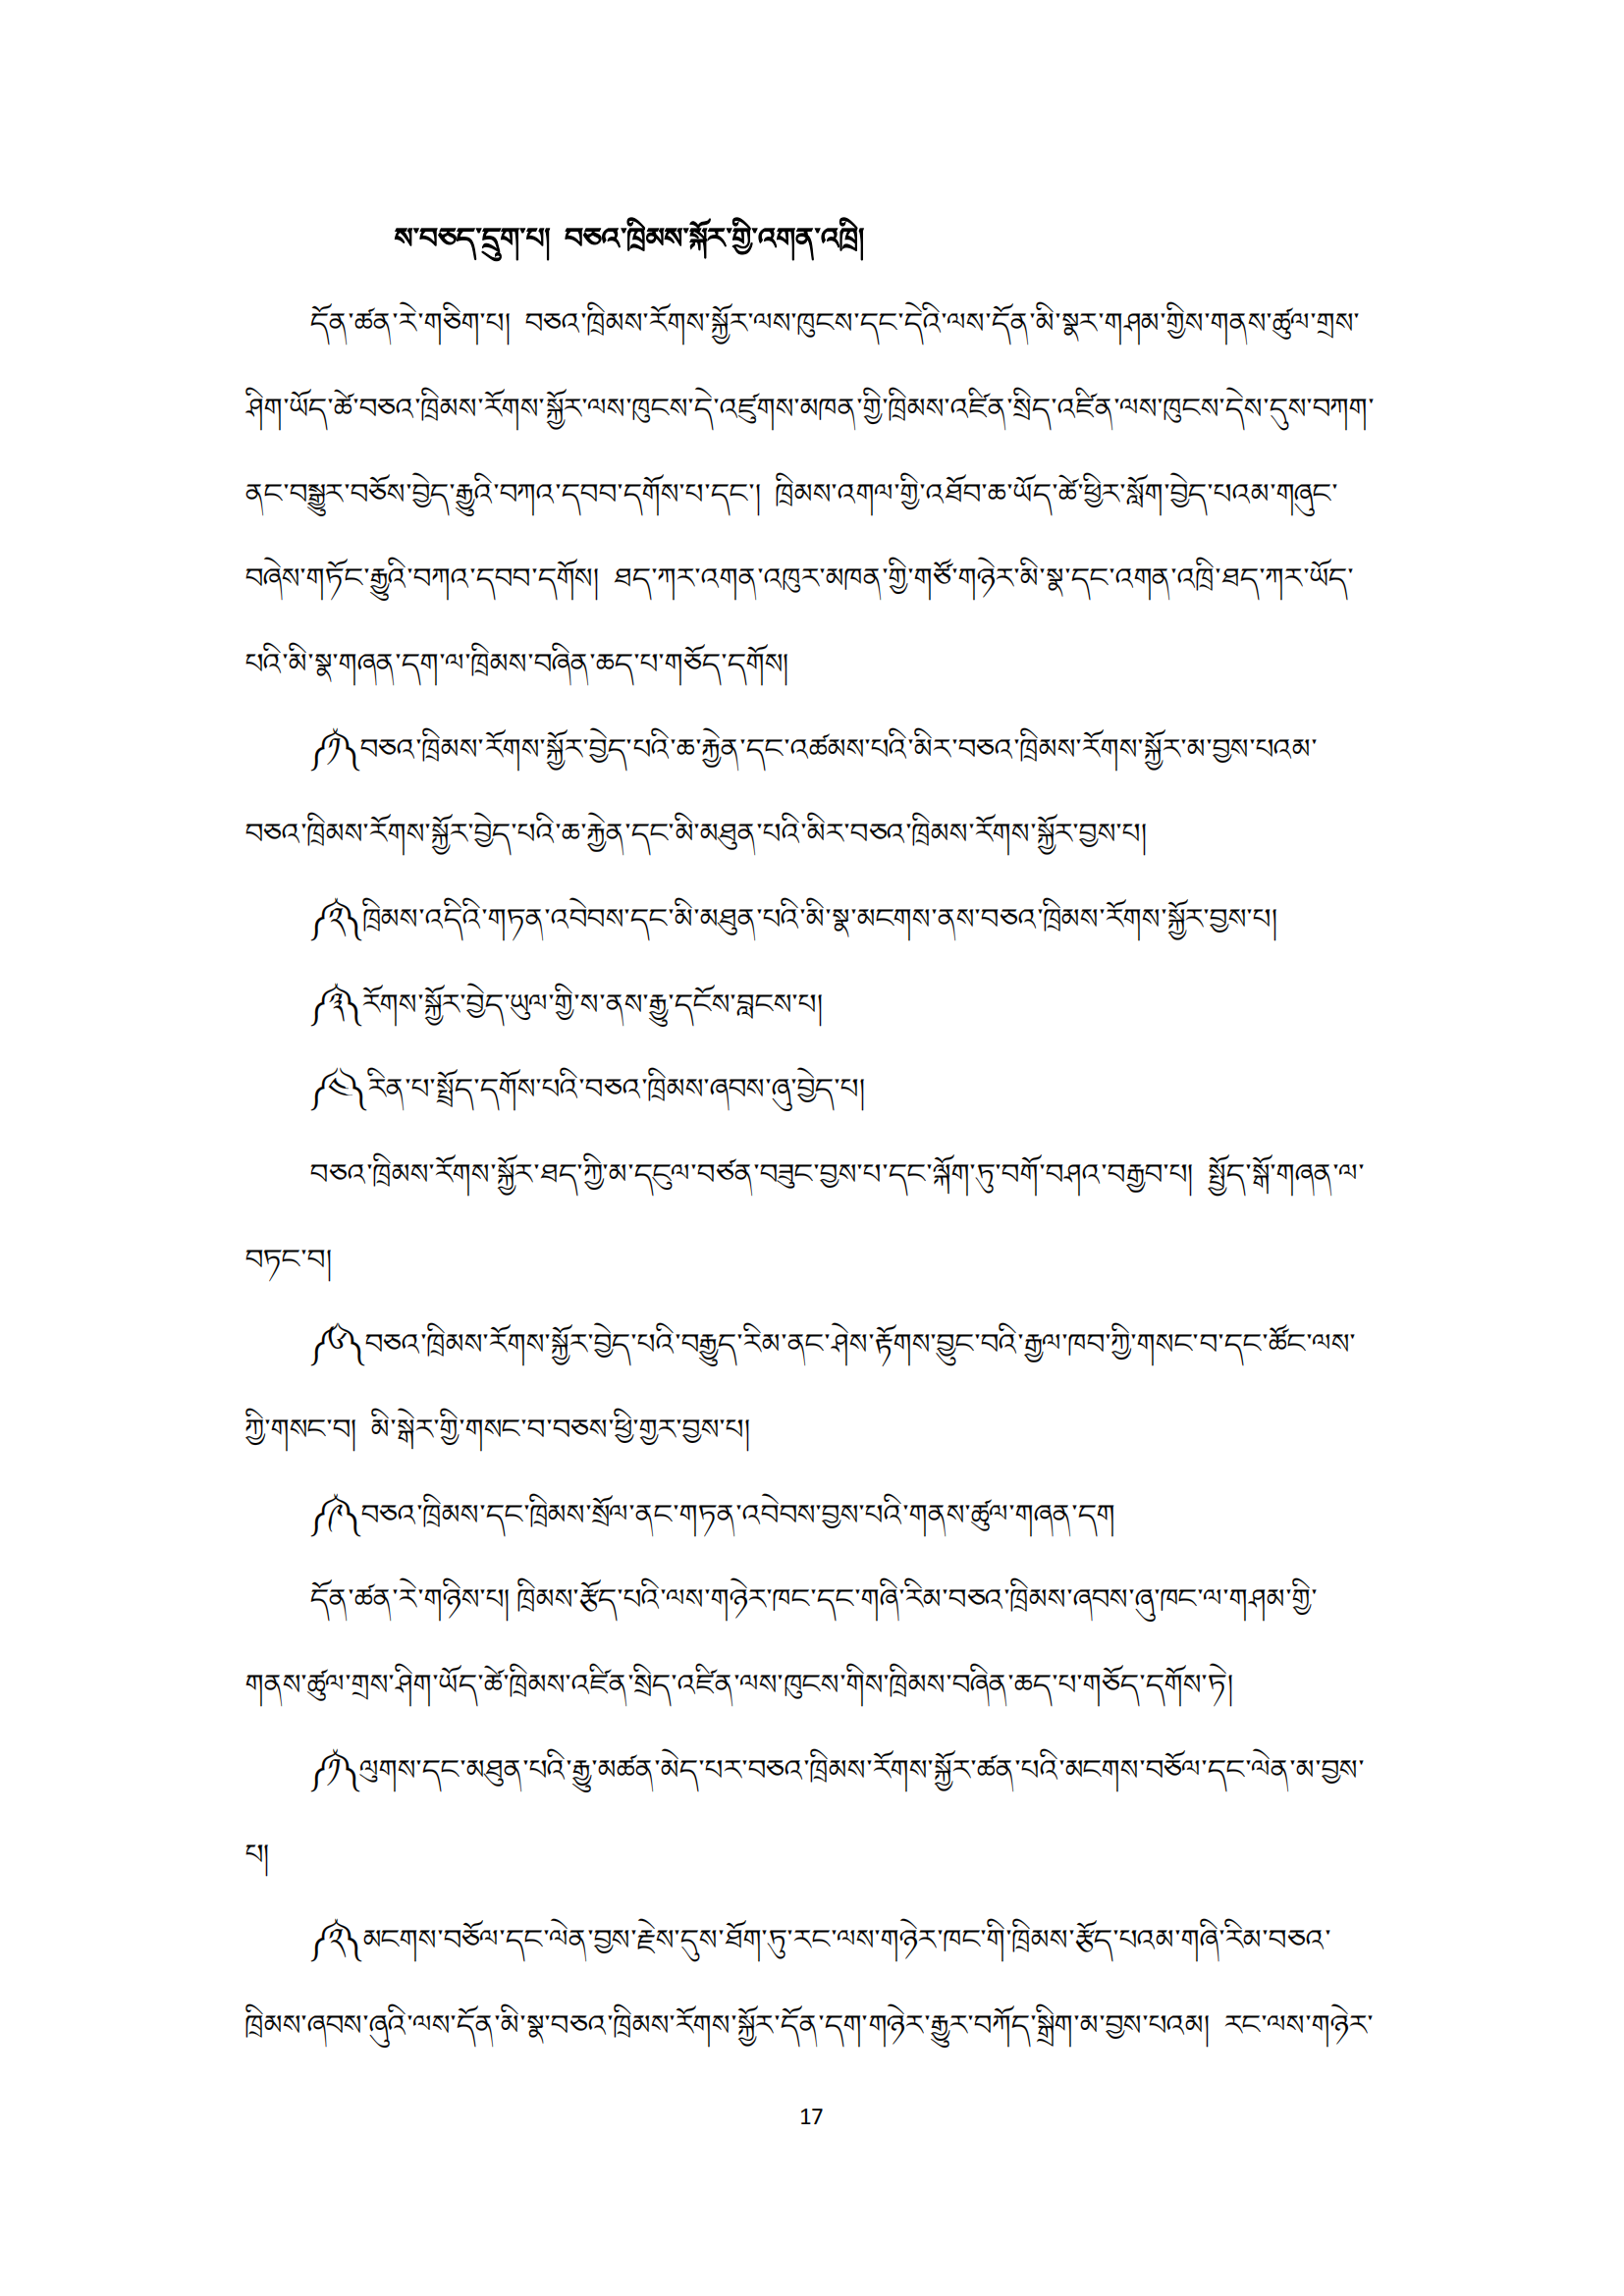 ས་བཅད་དྲུག་པ།  བཅའ་ཁྲིམས་སྐོར་གྱི་འགན་འཁྲི།
དོན་ཚན་རེ་གཅིག་པ།  བཅའ་ཁྲིམས་རོགས་སྐྱོར་ལས་ཁུངས་དང་དེའི་ལས་དོན་མི་སྣར་གཤམ་གྱིས་གནས་ཚུལ་གྲས་
ཤིག་ཡོད་ཚེ་བཅའ་ཁྲིམས་རོགས་སྐྱོར་ལས་ཁུངས་དེ་འཛུགས་མཁན་གྱི་ཁྲིམས་འཛིན་སྲིད་འཛིན་ལས་ཁུངས་དེས་དུས་བཀག་
ནང་བསྒྱུར་བཅོས་བྱེད་རྒྱུའི་བཀའ་དབབ་དགོས་པ་དང་།  ཁྲིམས་འགལ་གྱི་འཐོབ་ཆ་ཡོད་ཚེ་ཕྱིར་སློག་བྱེད་པའམ་གཞུང་
བཞེས་གཏོང་རྒྱུའི་བཀའ་དབབ་དགོས།  ཐད་ཀར་འགན་འཁུར་མཁན་གྱི་གཙོ་གཉེར་མི་སྣ་དང་འགན་འཁྲི་ཐད་ཀར་ཡོད་
པའི་མི་སྣ་གཞན་དག་ལ་ཁྲིམས་བཞིན་ཆད་པ་གཅོད་དགོས།
༼༡༽བཅའ་ཁྲིམས་རོགས་སྐྱོར་བྱེད་པའི་ཆ་རྐྱེན་དང་འཚམས་པའི་མིར་བཅའ་ཁྲིམས་རོགས་སྐྱོར་མ་བྱས་པའམ་
བཅའ་ཁྲིམས་རོགས་སྐྱོར་བྱེད་པའི་ཆ་རྐྱེན་དང་མི་མཐུན་པའི་མིར་བཅའ་ཁྲིམས་རོགས་སྐྱོར་བྱས་པ།
༼༢༽ཁྲིམས་འདིའི་གཏན་འབེབས་དང་མི་མཐུན་པའི་མི་སྣ་མངགས་ནས་བཅའ་ཁྲིམས་རོགས་སྐྱོར་བྱས་པ།
༼༣༽རོགས་སྐྱོར་བྱེད་ཡུལ་གྱི་ས་ནས་རྒྱུ་དངོས་བླངས་པ།
༼༤༽རིན་པ་སྤྲོད་དགོས་པའི་བཅའ་ཁྲིམས་ཞབས་ཞུ་བྱེད་པ།
བཅའ་ཁྲིམས་རོགས་སྐྱོར་ཐད་ཀྱི་མ་དངུལ་བཙན་བཟུང་བྱས་པ་དང་ལྐོག་ཏུ་བགོ་བཤའ་བརྒྱབ་པ།  སྤྱོད་སྒོ་གཞན་ལ་
བཏང་བ།
༼༦༽བཅའ་ཁྲིམས་རོགས་སྐྱོར་བྱེད་པའི་བརྒྱུད་རིམ་ནང་ཤེས་རྟོགས་བྱུང་བའི་རྒྱལ་ཁབ་ཀྱི་གསང་བ་དང་ཚོང་ལས་
ཀྱི་གསང་བ།  མི་སྒེར་གྱི་གསང་བ་བཅས་ཕྱི་གྱར་བྱས་པ།
༼༧༽བཅའ་ཁྲིམས་དང་ཁྲིམས་སྲོལ་ནང་གཏན་འབེབས་བྱས་པའི་གནས་ཚུལ་གཞན་དག
དོན་ཚན་རེ་གཉིས་པ། ཁྲིམས་རྩོད་པའི་ལས་གཉེར་ཁང་དང་གཞི་རིམ་བཅའ་ཁྲིམས་ཞབས་ཞུ་ཁང་ལ་གཤམ་གྱི་
གནས་ཚུལ་གྲས་ཤིག་ཡོད་ཚེ་ཁྲིམས་འཛིན་སྲིད་འཛིན་ལས་ཁུངས་གིས་ཁྲིམས་བཞིན་ཆད་པ་གཅོད་དགོས་ཏེ།
༼༡༽ལུགས་དང་མཐུན་པའི་རྒྱུ་མཚན་མེད་པར་བཅའ་ཁྲིམས་རོགས་སྐྱོར་ཚན་པའི་མངགས་བཅོལ་དང་ལེན་མ་བྱས་
པ།
༼༢༽མངགས་བཅོལ་དང་ལེན་བྱས་རྗེས་དུས་ཐོག་ཏུ་རང་ལས་གཉེར་ཁང་གི་ཁྲིམས་རྩོད་པའམ་གཞི་རིམ་བཅའ་
ཁྲིམས་ཞབས་ཞུའི་ལས་དོན་མི་སྣ་བཅའ་ཁྲིམས་རོགས་སྐྱོར་དོན་དག་གཉེར་རྒྱུར་བཀོད་སྒྲིག་མ་བྱས་པའམ།  རང་ལས་གཉེར་
17